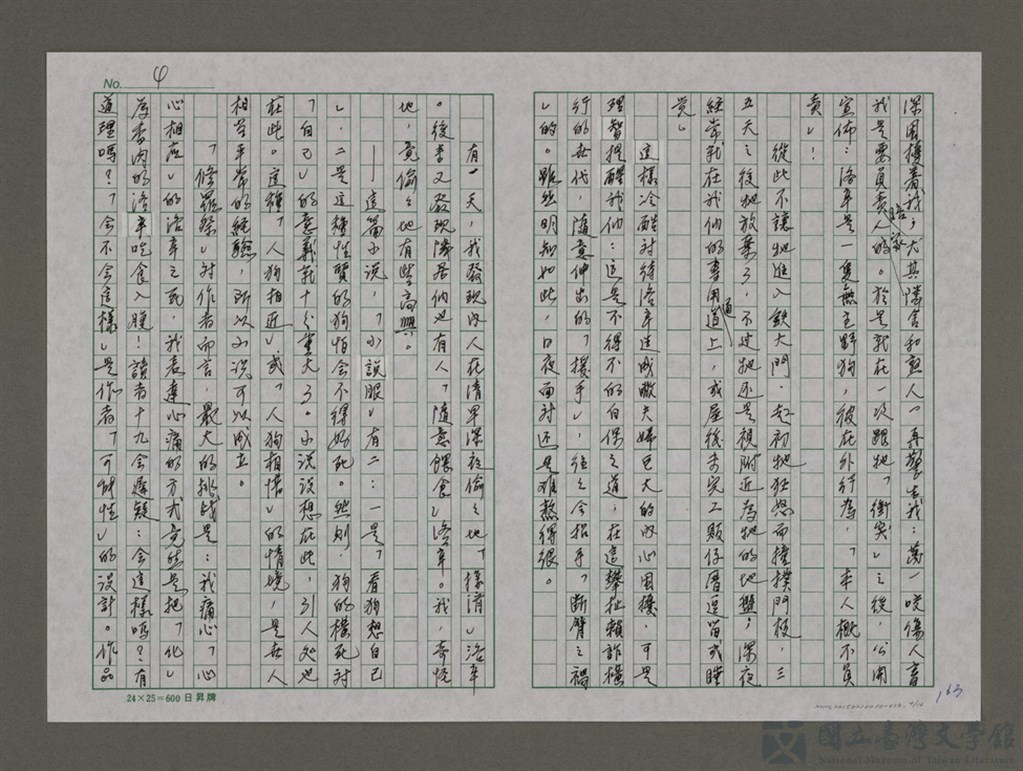 No. 4
深困擾著我；尤其隣舍和熟人一再警告我：萬一咬傷人畜
我是要負責賠人家的。於是就在一次跟牠「衝突」之後，公開
宣佈：洛辛是一隻無主野狗，彼在外行為，「本人概不負
責」！
從此不讓牠進入鐵大門。起初牠狂怒而撞撲門板，三
五天之後牠放棄了，不过牠还是視附近為牠的地盤；深夜
經常就在我们的書用通道上，或屋後未完工販仔厝逗留或睡
覺。
這樣冷酷对待洛辛造成敝夫婦巨大的內心困擾，可是
理智提醒我们：這是不得不的自保之道，在這攀扯賴詐橫
行的世代，隨意伸出的「援手」，往往会招手「斷臂之禍
」的。雖然明知如此，日夜面对还是难熬得很。
有一天，我發現內人在清早深夜偷偷地「接濟」洛辛
。後來又發現隣居们也有人「隨意餵食」洛辛。我，奇怪
地，竟偷偷地有些高興。
——這篇小說，「小說眼」有二：一是「看狗想自己
」，二是這種性質的狗怕会不得好死。然則，狗的橫死对
「自己」的意義就十分重大了。小說設想在此，引人处也
在此。這種「人狗相近」或「人狗相惜」的情境，是世人
相当平常的經驗，所以小說可以成立。
「修羅祭」对作者而言，最大的挑战是：我痛心「心
心相应」的洛辛之死，我表達心痛的方式竟然是把「化」
為香肉的洛辛吃食入腹！讀者十九会遲疑：会這樣嗎？有
道理嗎？「会不会這樣」是作者「可能性」的設計。作品
24×25=600 日昇牌
163
國立臺灣文學館
National Museum of Taiwan Literature